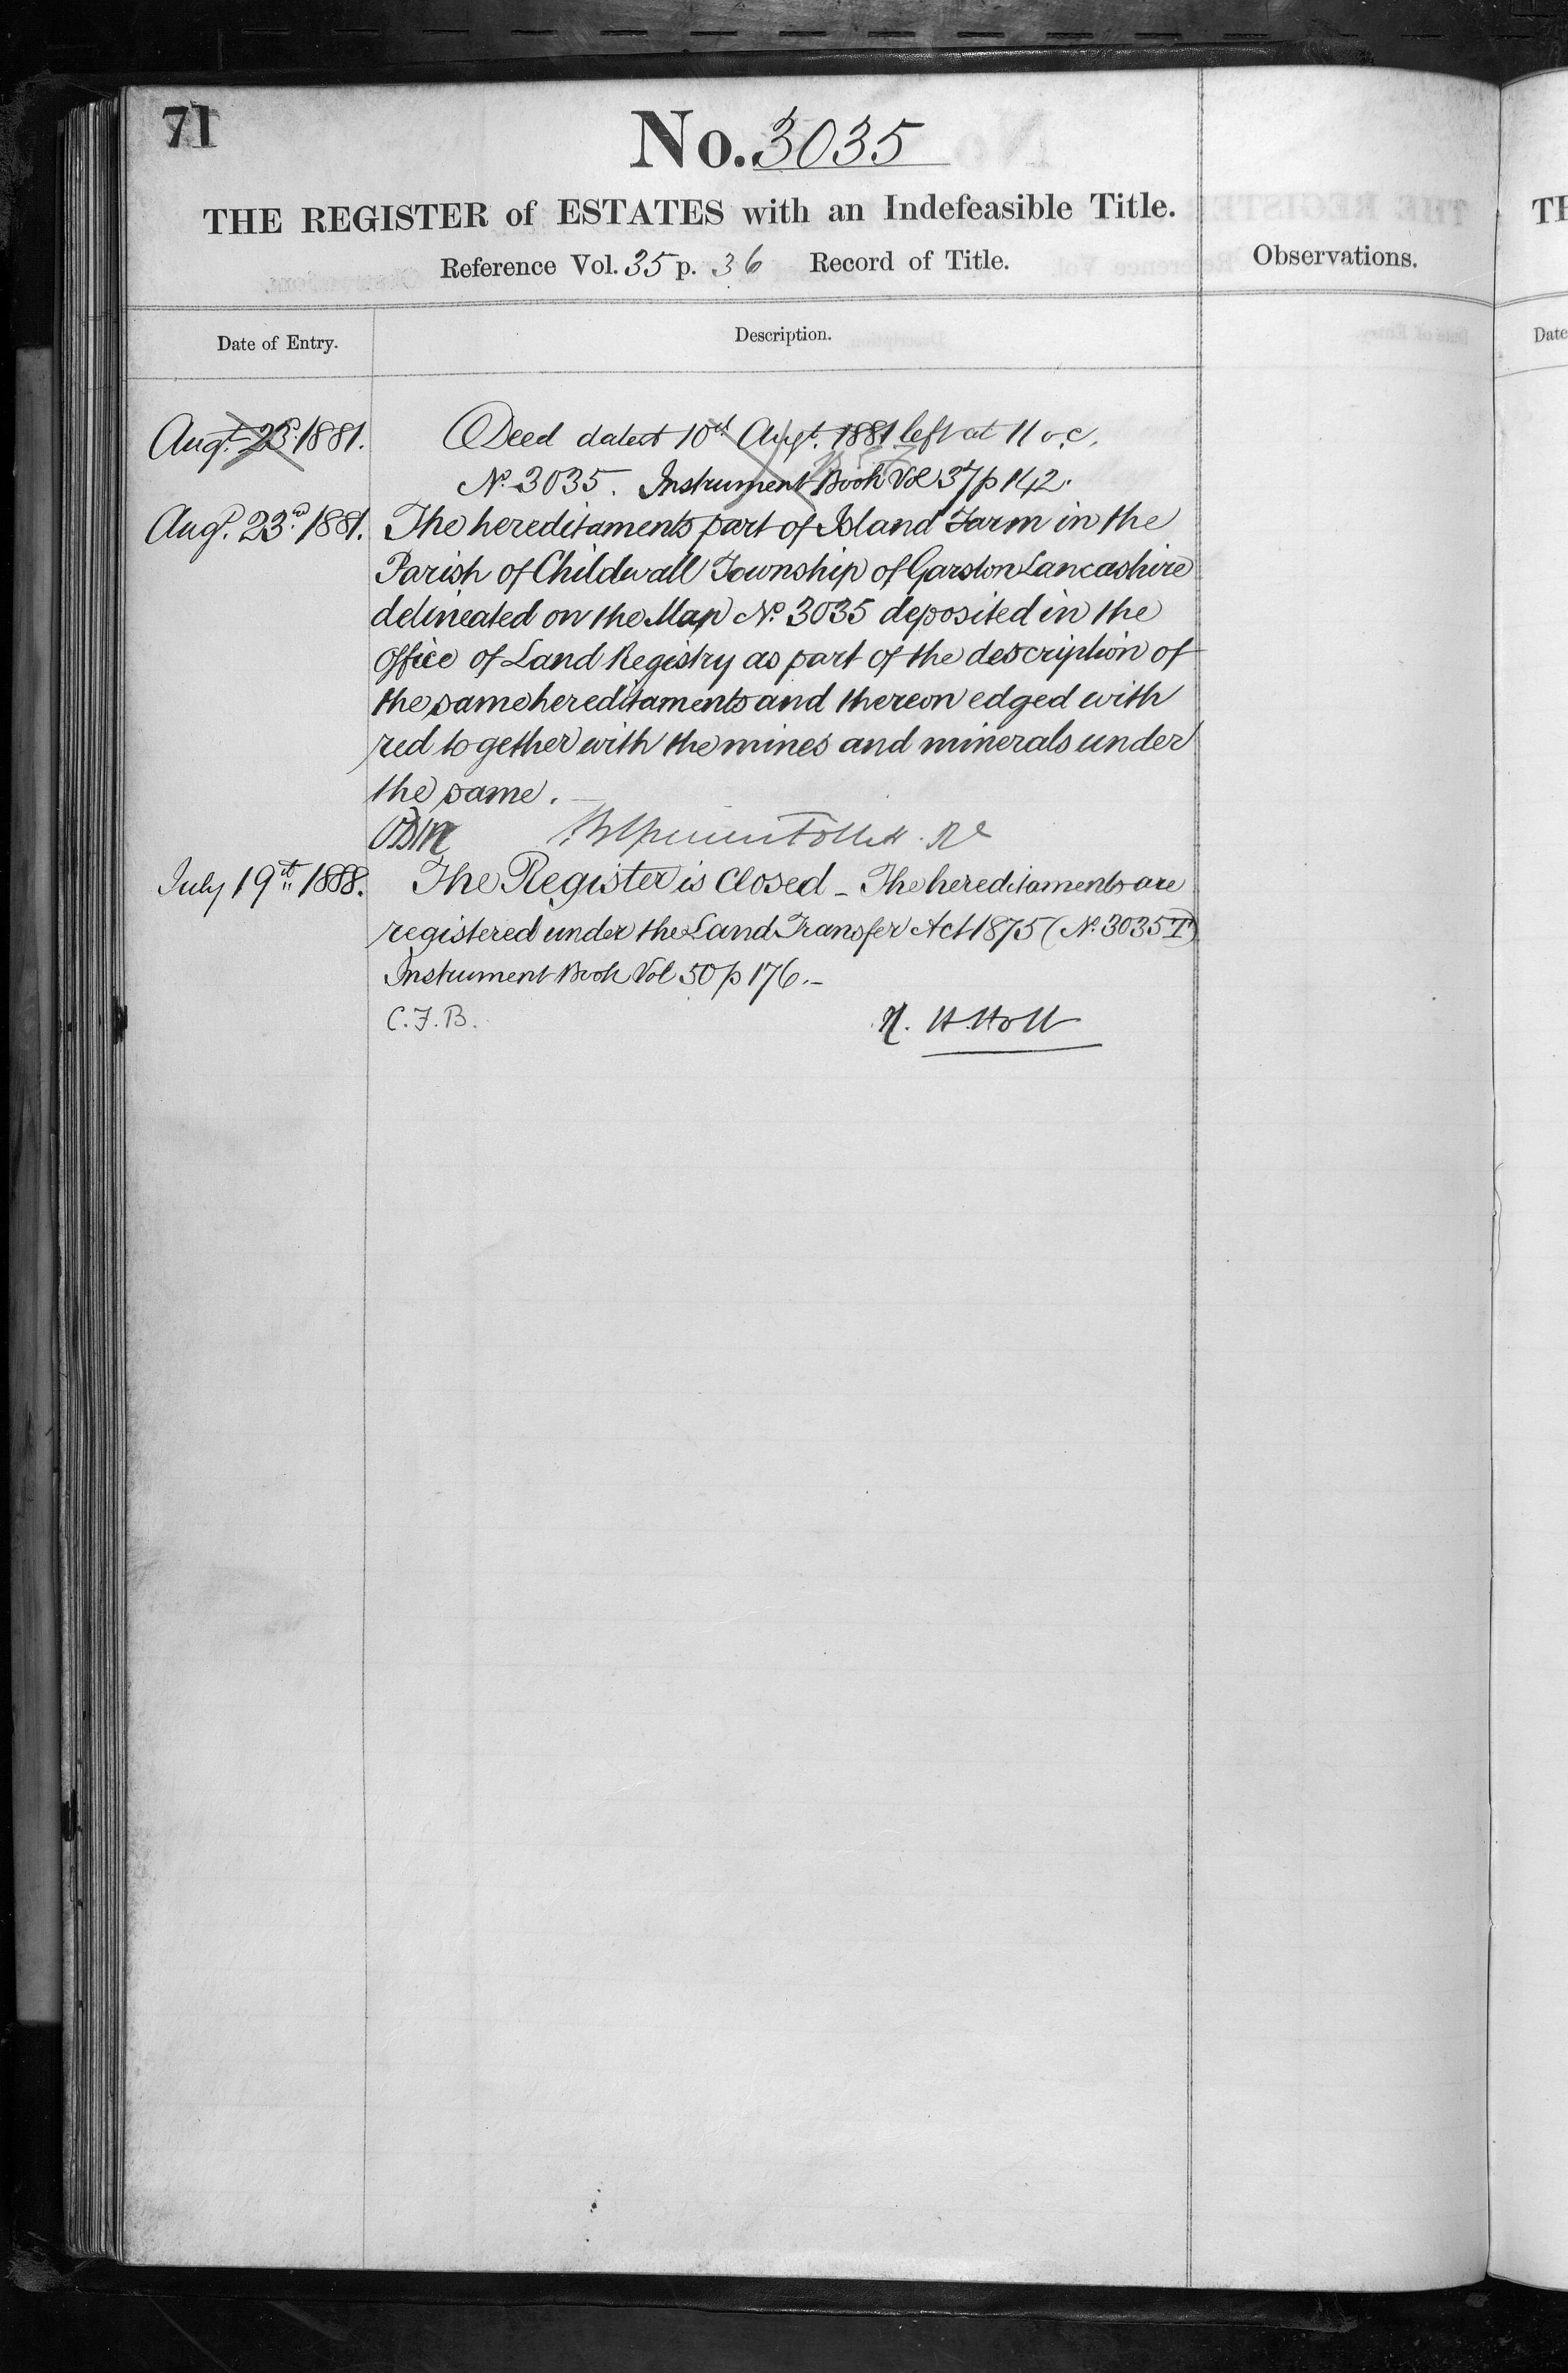 71
No. 3035
THE REGISTER of ESTATES with an Indefeasible Title.
Reference Vol. 35 p. 36 Record of Title.
Observations.
Date of Entry.
Description.
Augt. 23d. 1881. Deed dated 10th Augt. 1881 left at 11 o.c.
No. 3035. Instrument Book Vol 37 p 142.
Augt. 23d. 1881. The hereditaments part of Island Farm in the
Parish of Childwall Township of Garston Lancashire
delineated on the Map No. 3035 deposited in the
Office of Land Registry as part of the description of
the same hereditaments and thereon edged with
red together with the mines and minerals under
the same.
July 19th. 1888. The Register is Closed – The hereditaments are
registered under the Land Transfer Act 1875 (No. 3035 T)
Instrument Book Vol 50 p 176.–
C.F.B. H. Holt
TH
Date